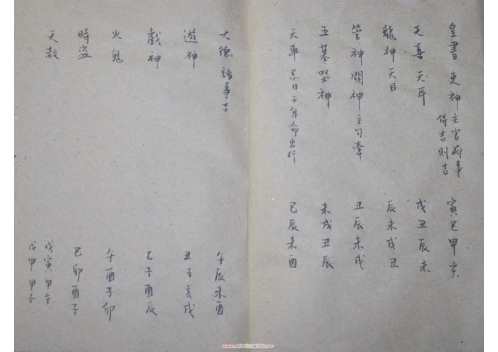 皇書 吏神 主官府事 傳吉則吉 寅巳申亥
天喜 天耳 戌丑辰未
龍神 天目 辰未戌丑
管神 關神 主勾牽 丑辰未戌
五墓 哭神 未戌丑辰
天車 忌日下年命出行 巳辰未酉
大德 諸事吉 午辰未酉
遊神 丑子亥戌
戲神 巳子酉辰
火鬼 午酉子卯
時盜 巳卯酉子
天赦 戊寅 甲午 戊申 甲子